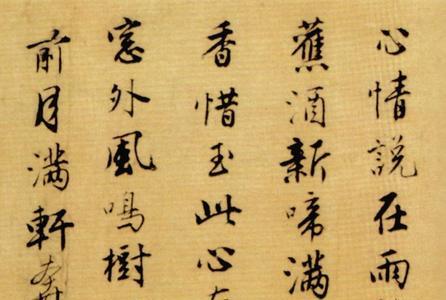 心情說在雨
蕉酒新啼滿
香惜玉此心
窓外風鳴樹
前月滿軒